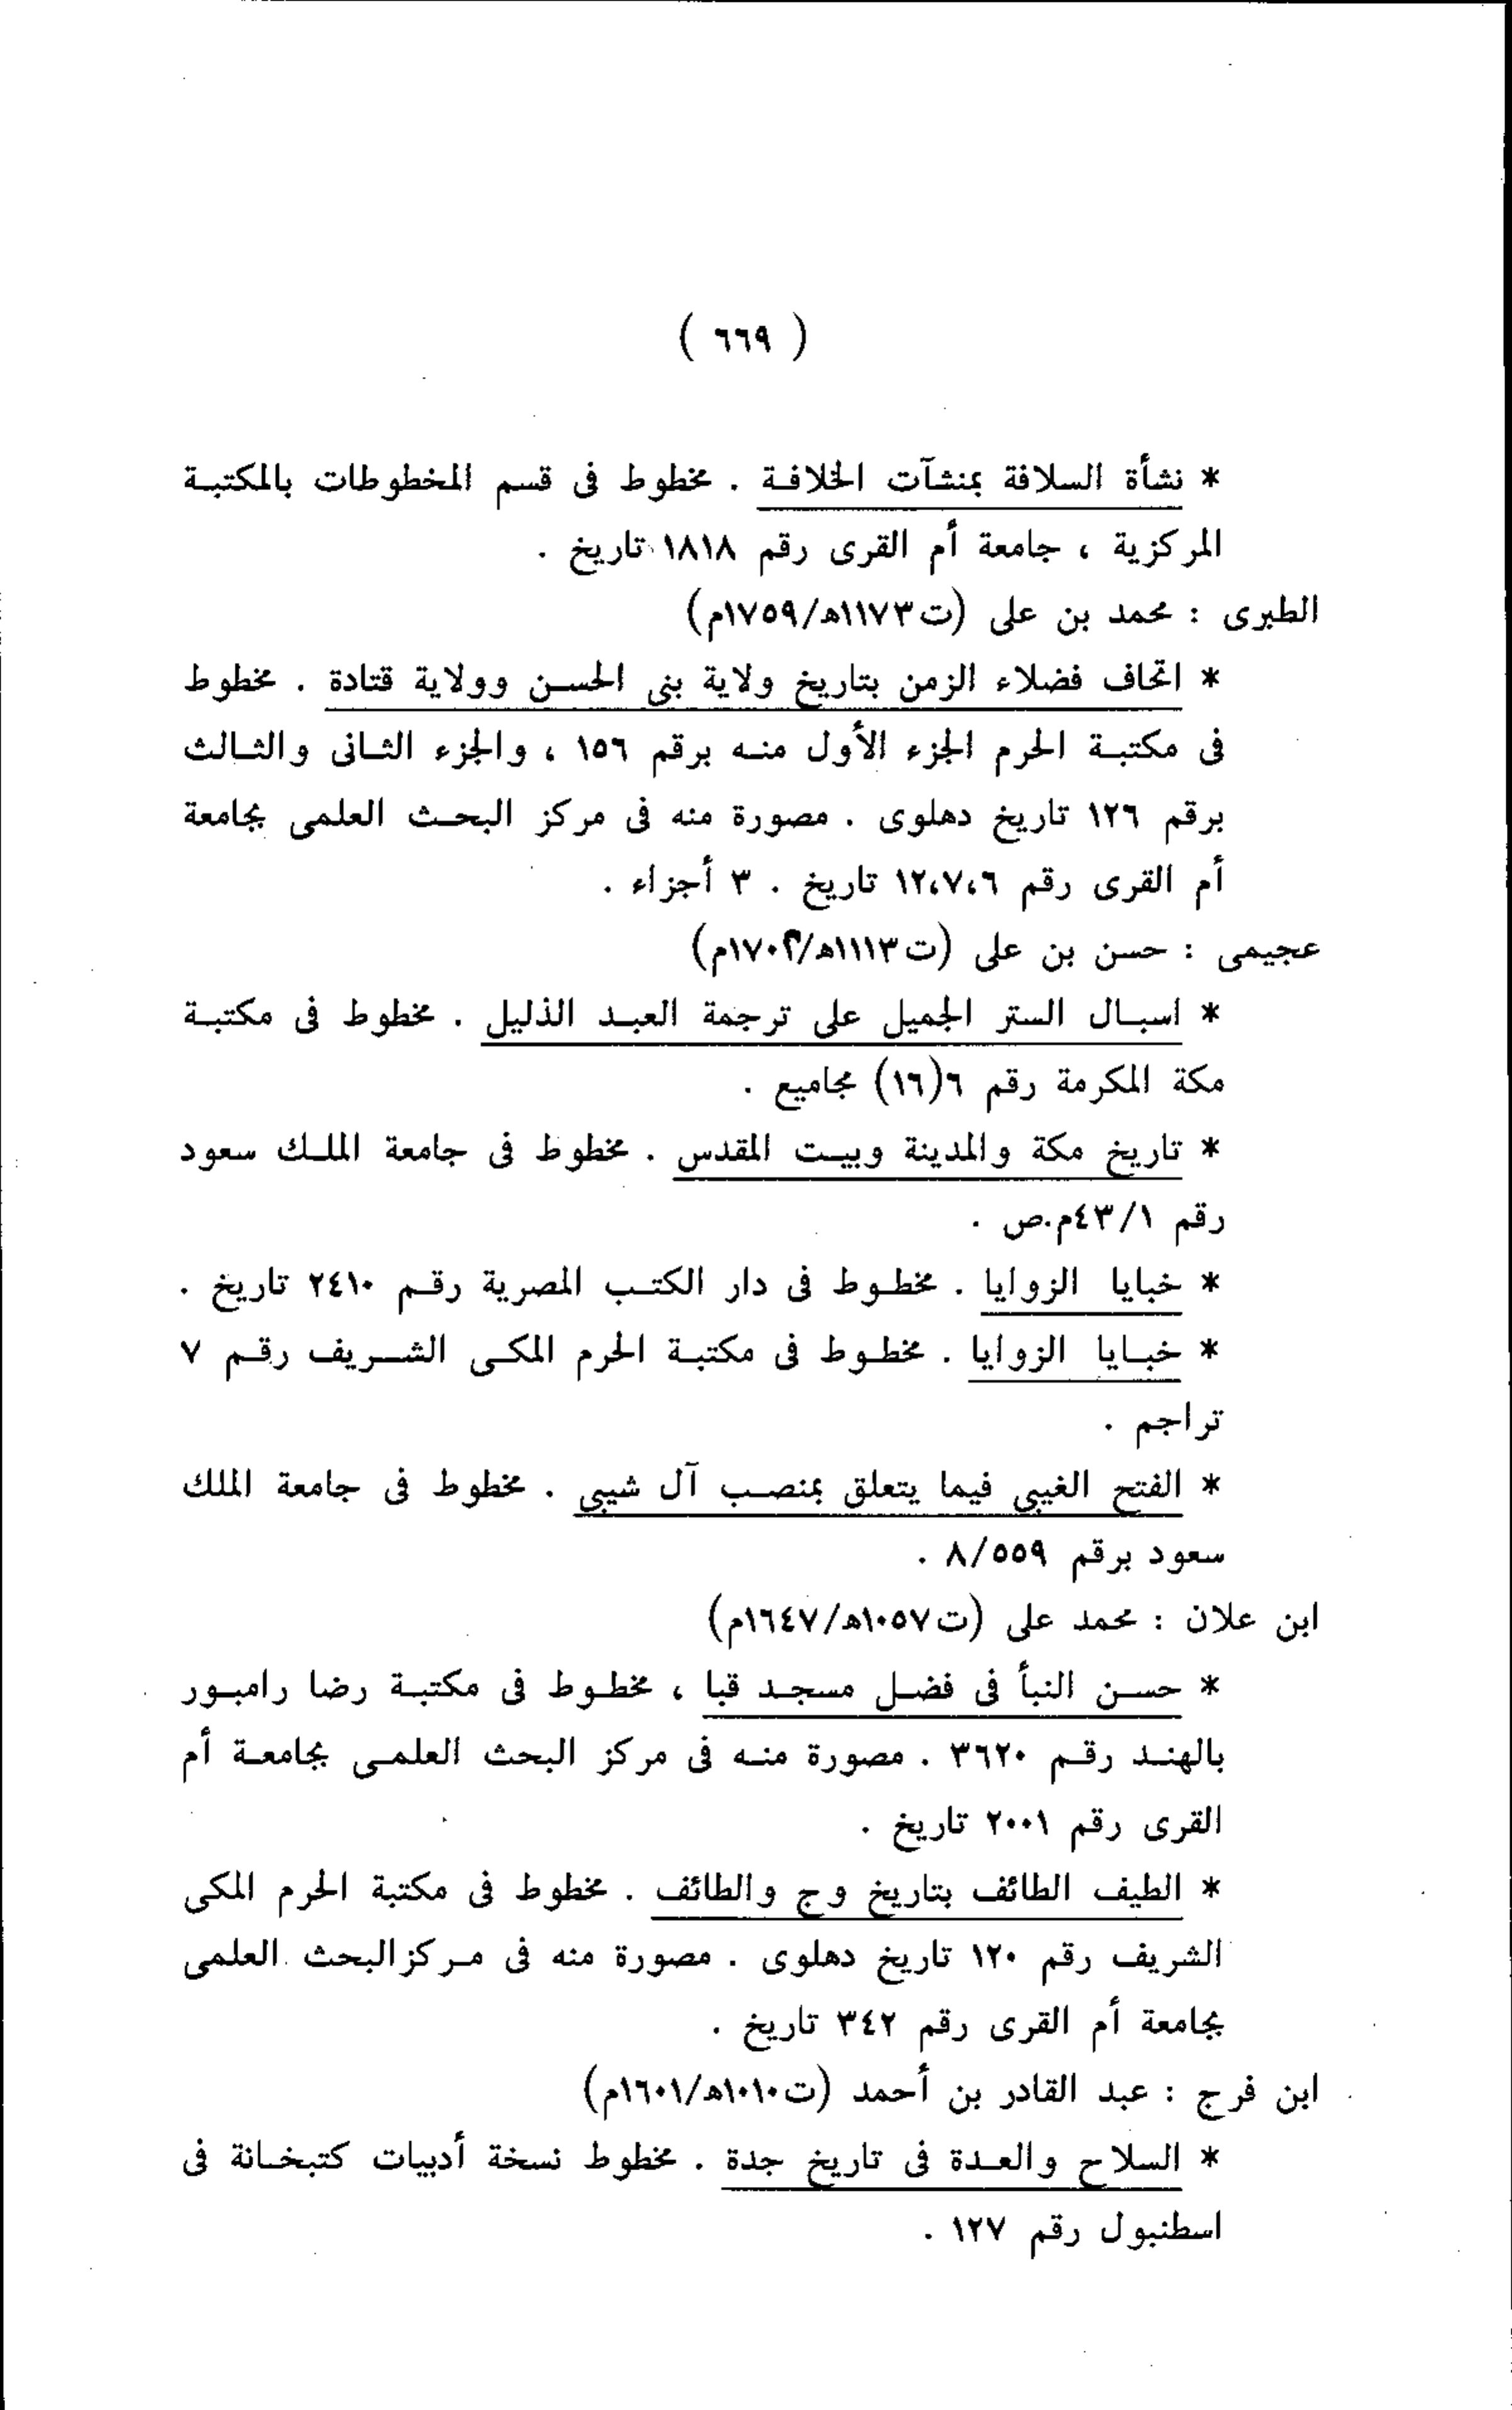 ( ٦٦٩ )
* نشأة السلافة بمنشآت الخلافة . مخطوط فى قسم المخطوطات بالمكتبة
المركزية ، جامعة أم القرى رقم ١٨١٨ تاريخ .
الطبرى : محمد بن على (ت١١٧٣هـ/١٧٥٩م)
* اتحاف فضلاء الزمن بتاريخ ولاية بنى الحسن وولاية قتادة . مخطوط
فى مكتبة الحرم الجزء الأول منه برقم ١٥٦ ، والجزء الثانى والثالث
برقم ١٢٦ تاريخ دهلوى . مصورة منه فى مركز البحث العلمى بجامعة
أم القرى رقم ١٢،٧،٦ تاريخ . ٣ أجزاء .
عجيمى : حسن بن على (ت١١١٣هـ/١٧٠٢م)
* اسبال الستر الجميل على ترجمة العبد الذليل . مخطوط فى مكتبة
مكة المكرمة رقم ٦(١٦) مجاميع .
* تاريخ مكة والمدينة وبيت المقدس . مخطوط فى جامعة الملك سعود
رقم ٤٣/١م.ص .
* خبايا الزوايا . مخطوط فى دار الكتب المصرية رقم ٢٤١٠ تاريخ .
* خبايا الزوايا . مخطوط فى مكتبة الحرم المكى الشريف رقم ٧
تراجم .
* الفتح الغيبى فيما يتعلق بمنصب آل شيبى . مخطوط فى جامعة الملك
سعود برقم ٨/٥٥٩ .
ابن علان : محمد على (ت١٠٥٧هـ/١٦٤٧م)
* حسن النبأ فى فضل مسجد قبا ، مخطوط فى مكتبة رضا رامبور
بالهند رقم ٣٦٢٠ . مصورة منه فى مركز البحث العلمى بجامعة أم
القرى رقم ٢٠٠١ تاريخ .
* الطيف الطائف بتاريخ وج والطائف . مخطوط فى مكتبة الحرم المكى
الشريف رقم ١٢٠ تاريخ دهلوى . مصورة منه فى مركز البحث العلمى
بجامعة أم القرى رقم ٣٤٢ تاريخ .
ابن فرج : عبد القادر بن أحمد (ت١٠١٠هـ/١٦٠١م)
* السلاح والعدة فى تاريخ جدة . مخطوط نسخة أدبيات كتبخانة فى
اسطنبول رقم ١٢٧ .